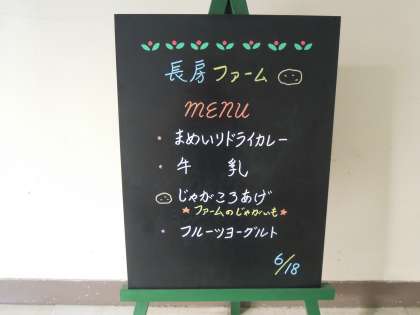 長房ファーム
MENU
* まめいりドライカレー
* 牛乳
じゃがころあげ
★ファームのじゃがいも★
* フルーツヨーグルト
6/18